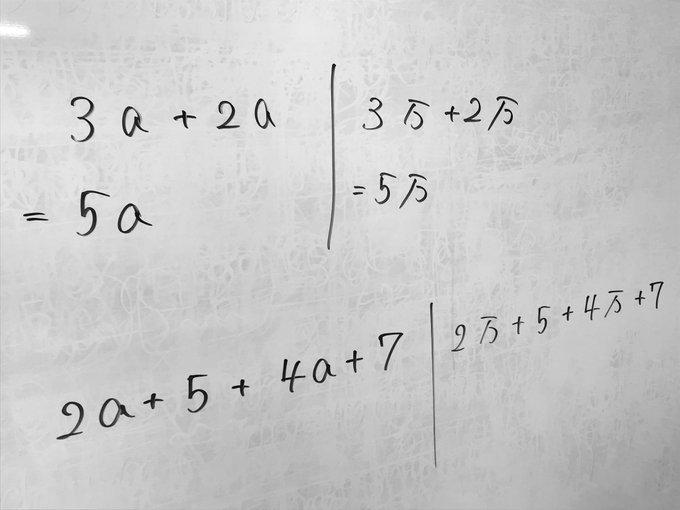 3a + 2a
= 5a
3万 + 2万
= 5万
2a + 5 + 4a + 7
2万 + 5 + 4万 + 7